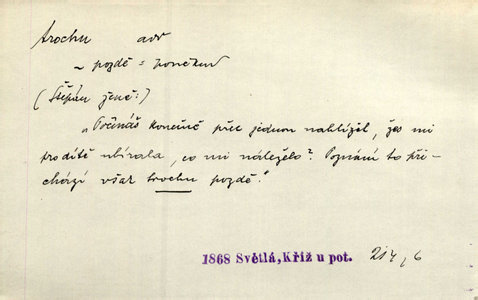 trochu adv
~ pozdě = poněkud
(Štěpán ženě:)
„Počínáš konečně přec jednou nahlížet, žes mi
pro dítě ubírala, co mi náleželo? Poznání to při-
chází však trochu pozdě."
1868 Světlá, Kříž u pot. 214, 6